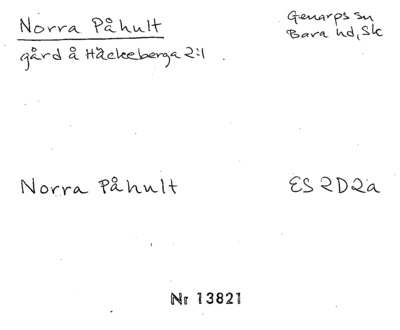 Norra Påhult
Genarps sn
Bara hd, Sk
gård å Häckeberga 2:1
Norra Påhult
ES 2D2a
Nr 13821